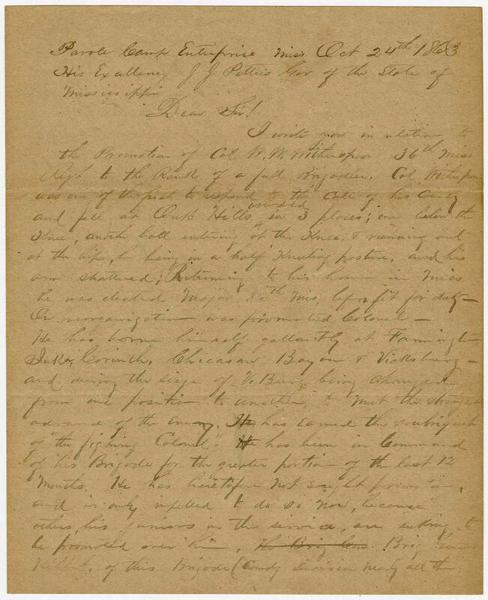 Parole Camp Enterprise Miss Oct 24th 1863
His Excellency J J Pettus Gov of the State of
Mississippi
Dear Sir!
I write now in relation to
the Promotion of Col W. W. Witherspoon 36th Miss
Regt to the Rank of a full Brigadier. Col Witherspoon
was one of the first to respond to the Call of his Country
and fell at Oak Hills wounded in 3 places; one below the
Knee, another ball entering at the Knee & running out
at the hip, he being in a half Kneeling posture, and his
arm shattered; Returning to his home in Miss
he was elected Major Miss, before fit for duty–
On reorganization was promoted Colonel–
He has borne himself gallantly at Farmington
Corinth, Chicasaw Bayou & Vicksburg–
and during the siege of V.Burg being changed
from one position to another to meet the strongest
advance of the enemy. He has earned the soubriquet
of the fighting Colonel. He has been in Command
of his Brigade for the greater portion of the last 12
Months. He has heretofore not sought promotion
and is only impelled to do so now, because
others his juniors in the service, are seeking to
be promoted over him. Brig
of this Brigade (Division nearly all the